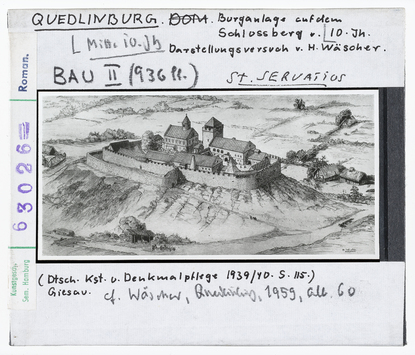 QUEDLINBURG. DOM. Burganlage auf dem
Schlossberg v. 10. Jh.
Mitte 10. Jh
Darstellungsversuch v. H. Wäscher.
BAU II (936 ff.)
ST. SERVATIUS
Roman.
63026
Kunstgesch.
Sem. Hamburg
(Dtsch. Kst. u. Denkmalpflege 1939/40. S. 115.)
Giesau.
cf. Wäscher, 1959, Abb. 60